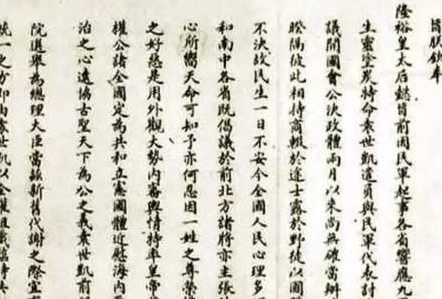 旨朕欽奉
隆裕皇太后懿旨前因民軍起事各省響應九
生靈塗炭特命袁世凱遣員與民軍代表討
議開國會公決政體兩月以來尚無確當辦
睽隔彼此相持商輟於途士露於野徒以國
不決故民生一日不安今全國人民心理多
和南中各省既倡議於前北方諸將亦主張
心所嚮天命可知予亦何忍因一姓之尊榮
之好惡是用外觀大勢內審輿情特率皇帝
權公諸全國定為共和立憲國體近慰海內
治之心遠協古聖天下為公之義袁世凱前
院選舉為總理大臣當茲新舊代謝之際宜
統一之方即由袁世凱以全權組織臨時共